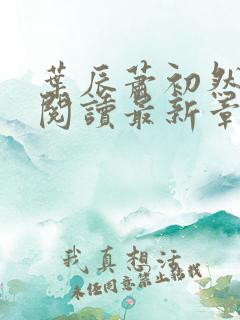 葉辰蕭初然
閱讀最新章
我真想活
未經同意禁止轉載